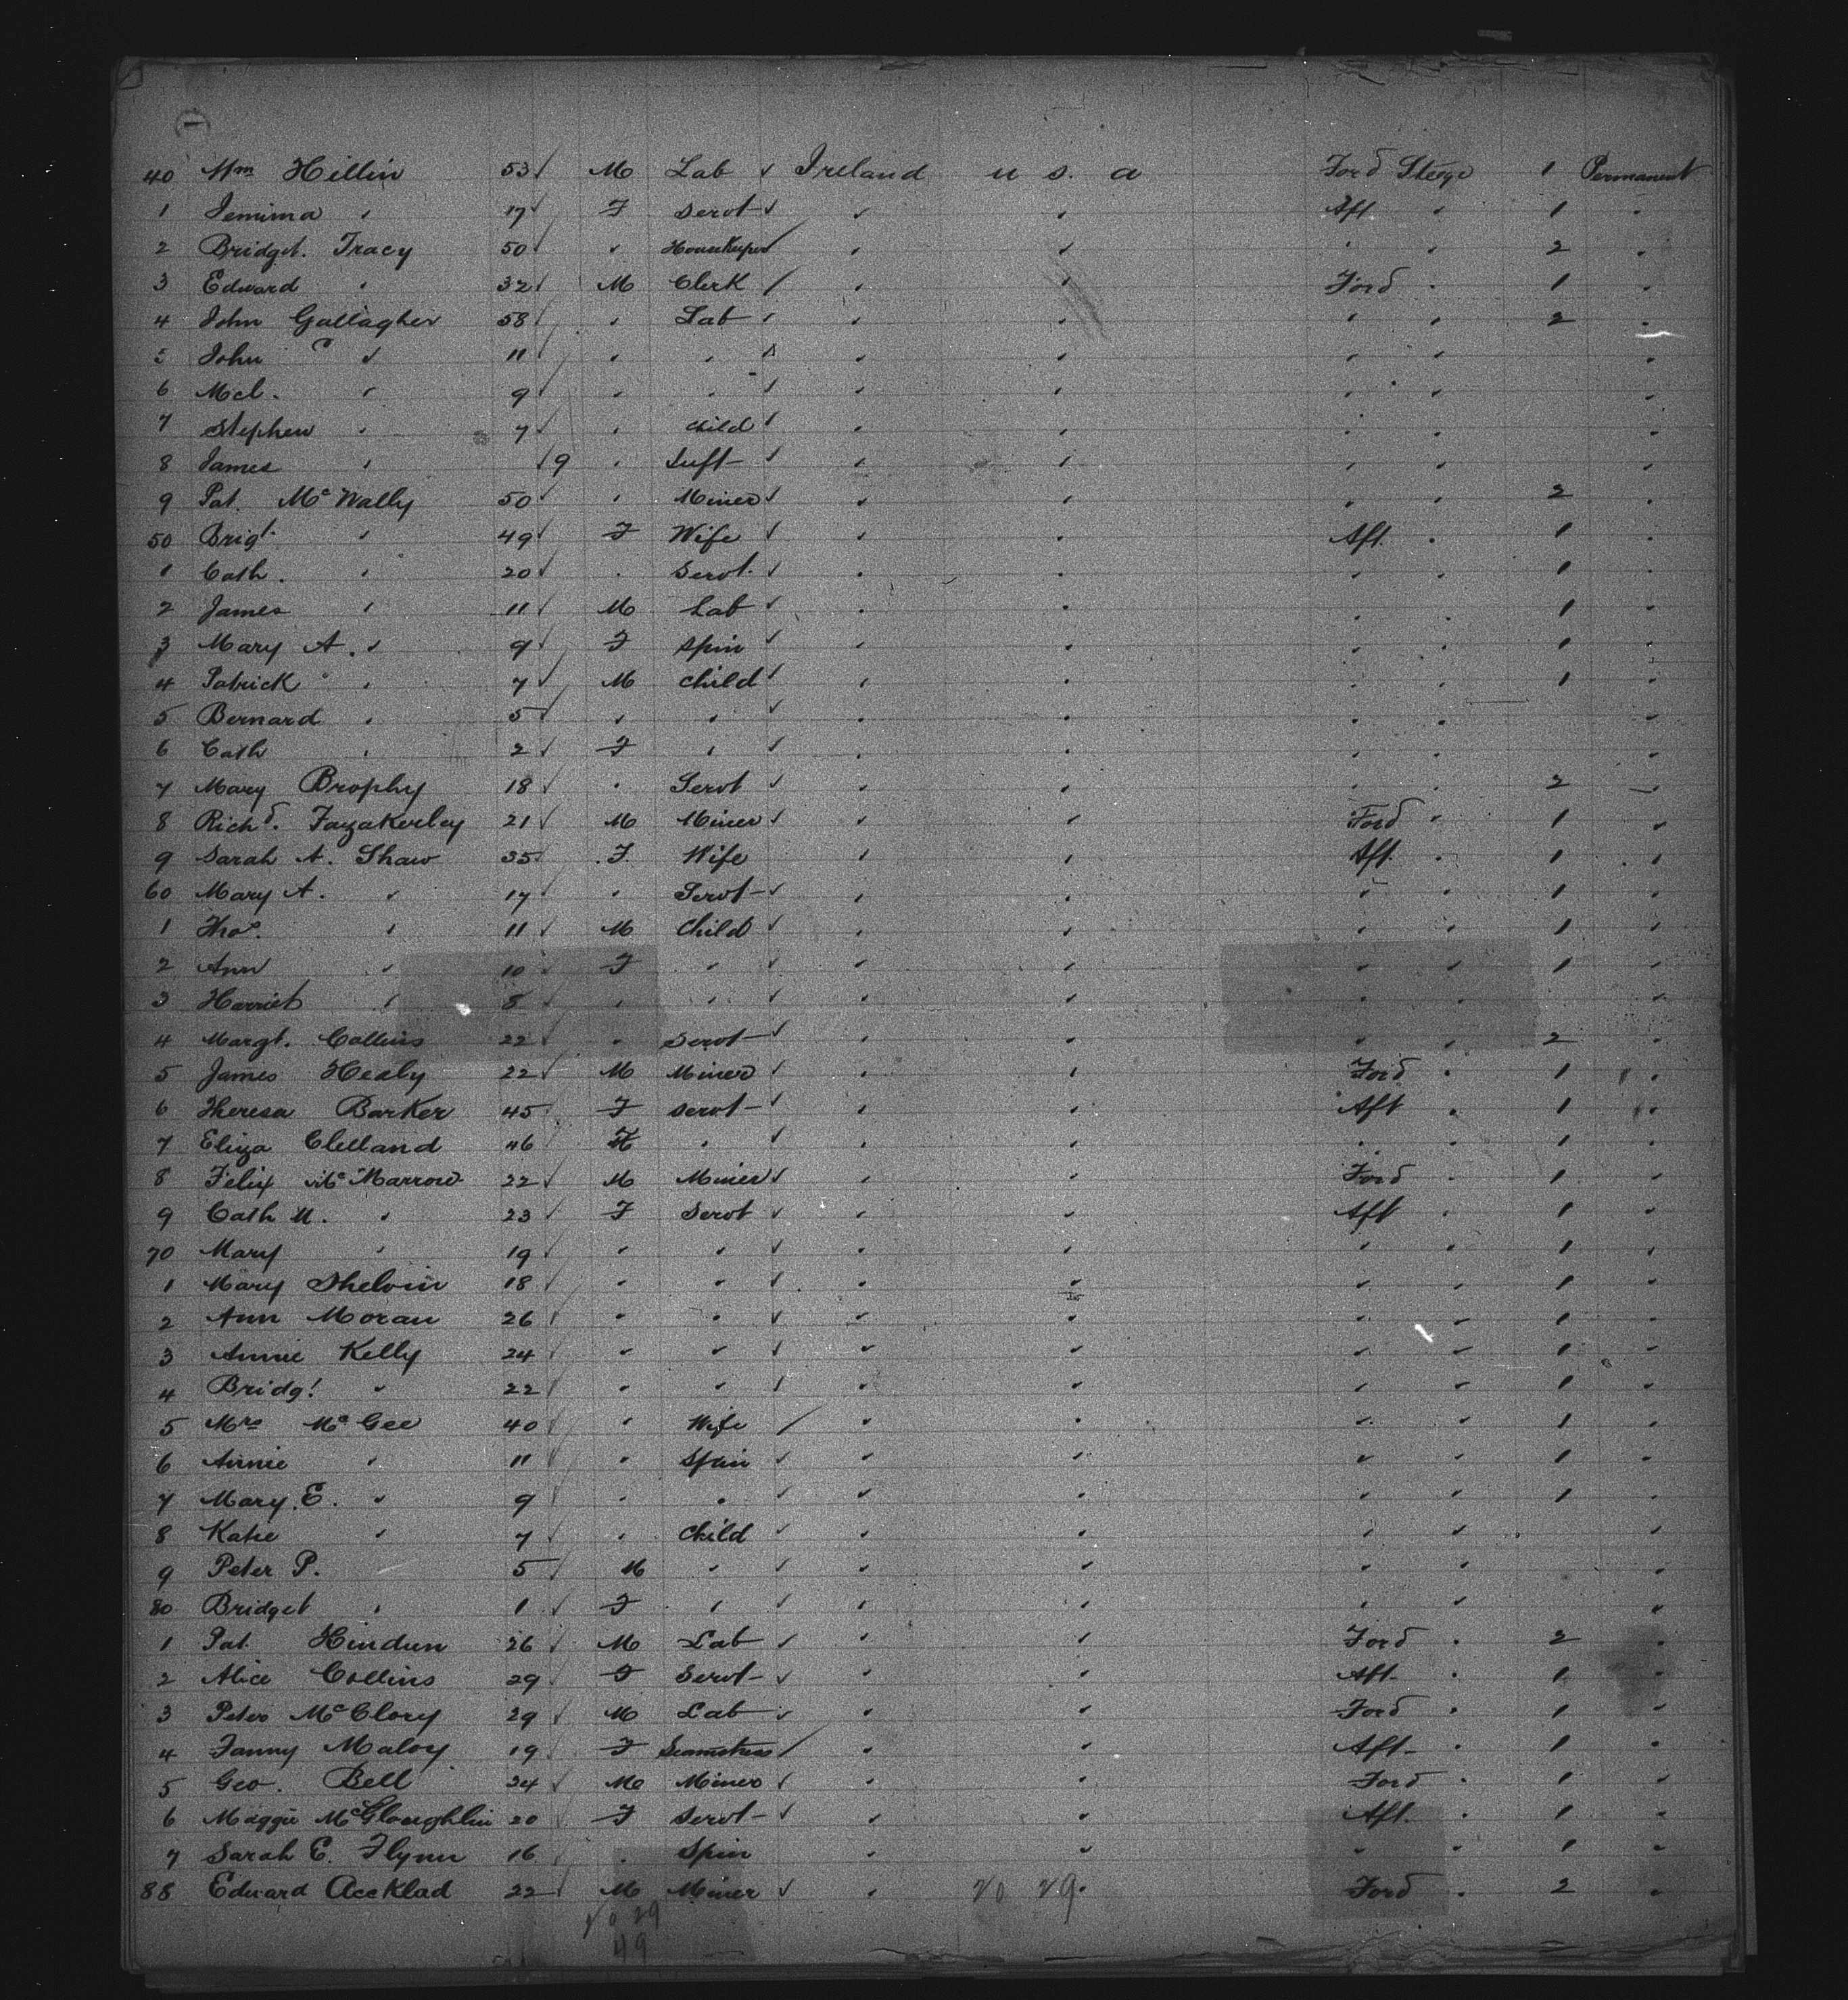 40 Wm Hillin 53 M Lab Ireland U S. A Ford Steege 1 Permanent
1 Jemima " 17 F Servt " " Aft " 1 "
2 Bridget. Tracy 50 " HouseKeeper " " " " 2 "
3 Edward " 32 M Clerk " " Ford " 1 "
4 John Gallagher 58 " Lab " " " " 2 "
5 John " 11 " " " " " " "
6 Mcl. " 9 " " " " " " "
7 Stephen " 7 " Child " " " " "
8 James " 9 " Inft " " " " "
9 Pat. McNally 50 " Miner " " " " 2 "
50 Brigt. " 49 F Wife " " Aft. " 1 "
1 Cath. " 20 " Servt. " " " " 1 "
2 James " 11 M Lab " " " " 1 "
3 Mary A. " 9 F Spin " " " " 1 "
4 Patrick " 7 M Child " " " " 1 "
5 Bernard " 5 " " " " " " "
6 Cath " 2 F " " " " " "
7 Mary Brophy 18 " Servt " " " " 2 "
8 Richd. Fazakerley 21 M Miner " " Ford " 1 "
9 Sarah A. Shaw 35 F Wife " " Aft. " 1 "
60 Mary A. " 17 " Servt " " " " 1 "
1 Thos. " 11 M Child " " " " 1 "
2 Ann " 10 F " " " " " 1 "
3 Harriet " 8 " " " " " " "
4 Margt. Collins 22 " Servt " " " " 2 "
5 James Healy 22 M Miner " " Ford " 1 "
6 Theresa Barker 45 F Servt " " Aft " 1 "
7 Eliza Clelland 46 F " " " " " 1 "
8 Felix McMarrow 22 M Miner " " Ford " 1 "
9 Cath M. " 23 F Servt " " Aft " 1 "
70 Mary " 19 " " " " " " 1 "
1 Mary Shelvin 18 " " " " " " 1 "
2 Ann Moran 26 " " " " " " 1 "
3 Annie Kelly 24 " " " " " " 1 "
4 Bridgt " 22 " " " " " " 1 "
5 Mrs McGee 40 " Wife " " " " 1 "
6 Annie " 11 " Spin " " " " 1 "
7 Mary. E. " 9 " " " " " " 1 "
8 Katie " 7 " Child " " " " "
9 Peter P. " 5 M " " " " " "
80 Bridget " 1 F " " " " " "
1 Pat. Hindun 26 M Lab " " Ford " 2 "
2 Alice Collins 29 F Servt " " Aft. " 1 "
3 Peter McClory 29 M Lab " " Ford " 1 "
4 Fanny Maloy 19 F Seamstress " " Aft " 1 "
5 Geo. Bell 24 M Miner " " Ford " 1 "
6 Maggie McGloughlin 20 F Servt " " Aft. " 1 "
7 Sarah E. Flynn 16 " Spin " " " " 1 "
88 Edward Accklad 22 M Miner " " Ford " 2 "
49